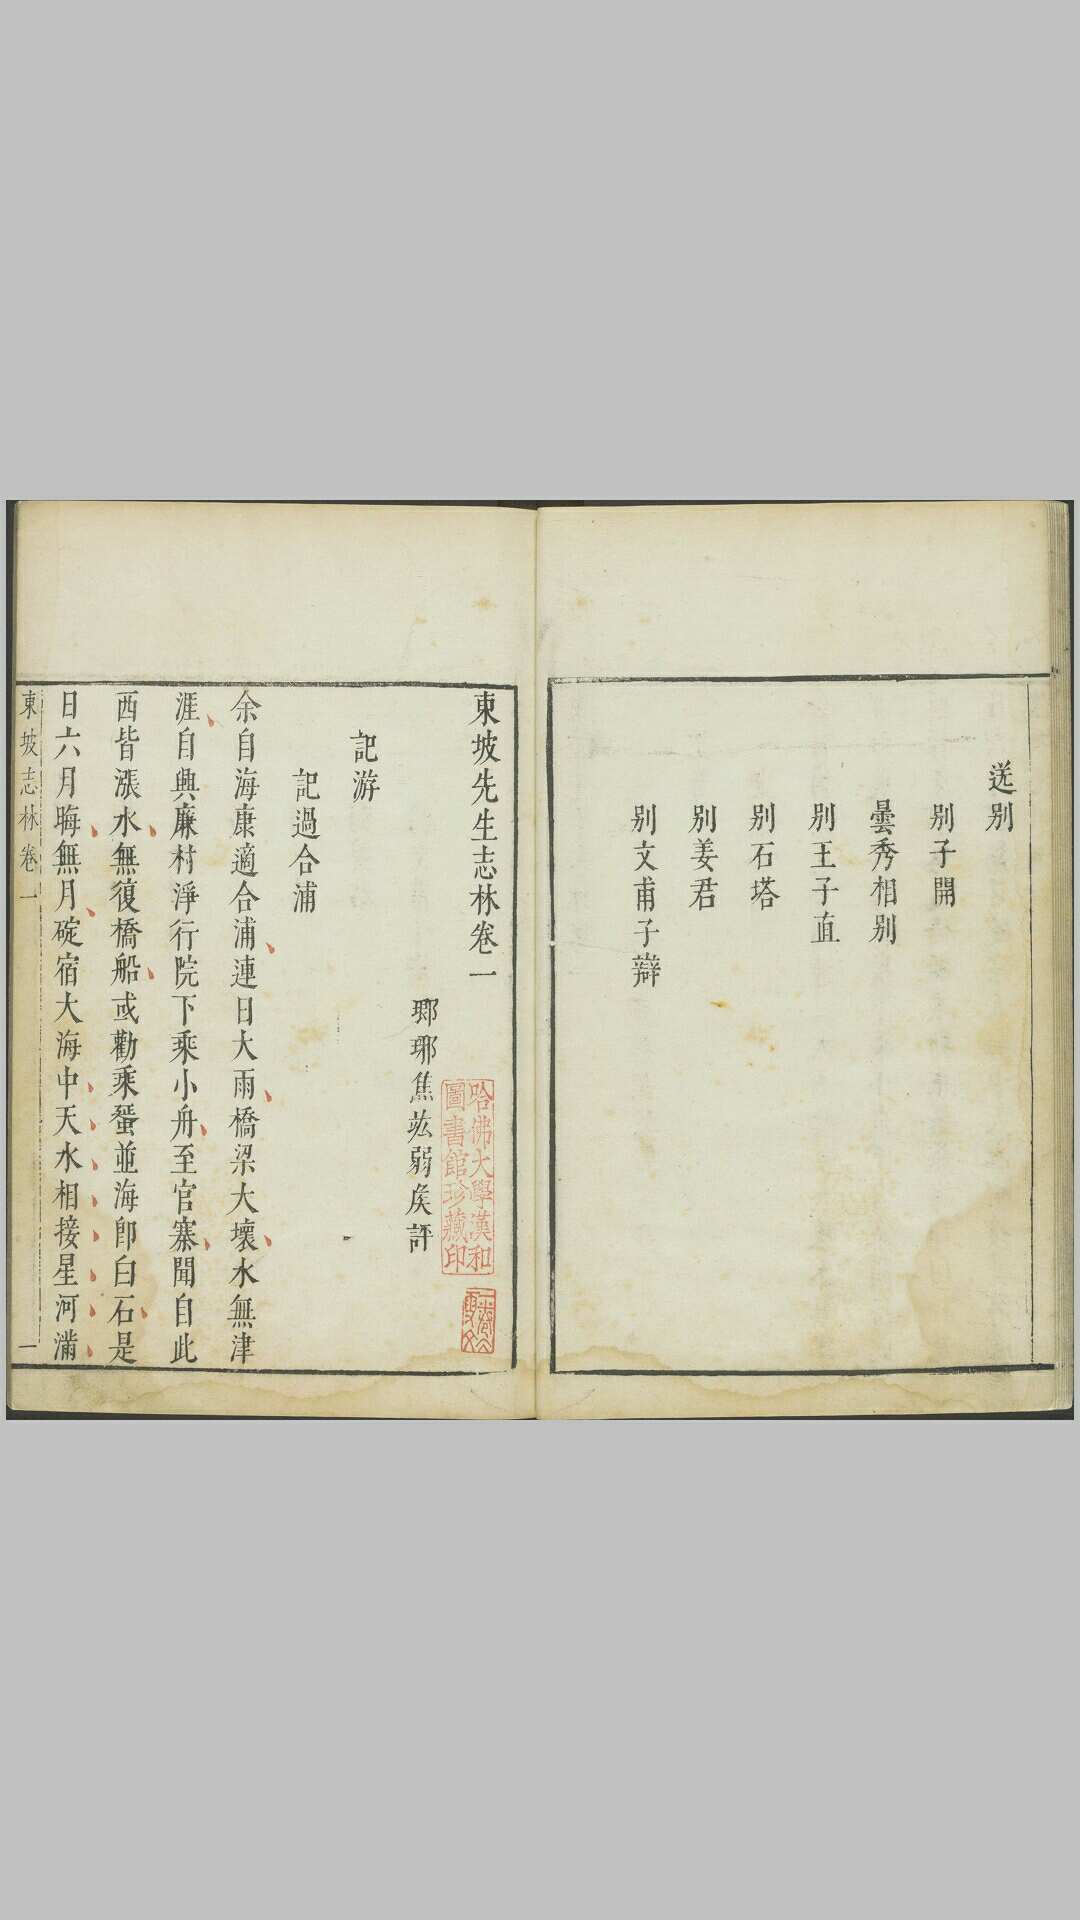 送别
别子開
曇秀相别
别王子直
别石塔
别姜君
别文甫子辯
東坡先生志林卷一
瑯琊焦竑弱侯評
哈佛大學漢和
圖書館珍藏印
記游
記過合浦
余自海康適合浦連日大雨橋梁大壞水無津
涯自興廉村淨行院下乘小舟至官寨聞自此
西皆漲水無復橋船或勸乘蜑並海即白石是
日六月晦無月碇宿大海中天水相接星河滿
東坡志林卷一
一